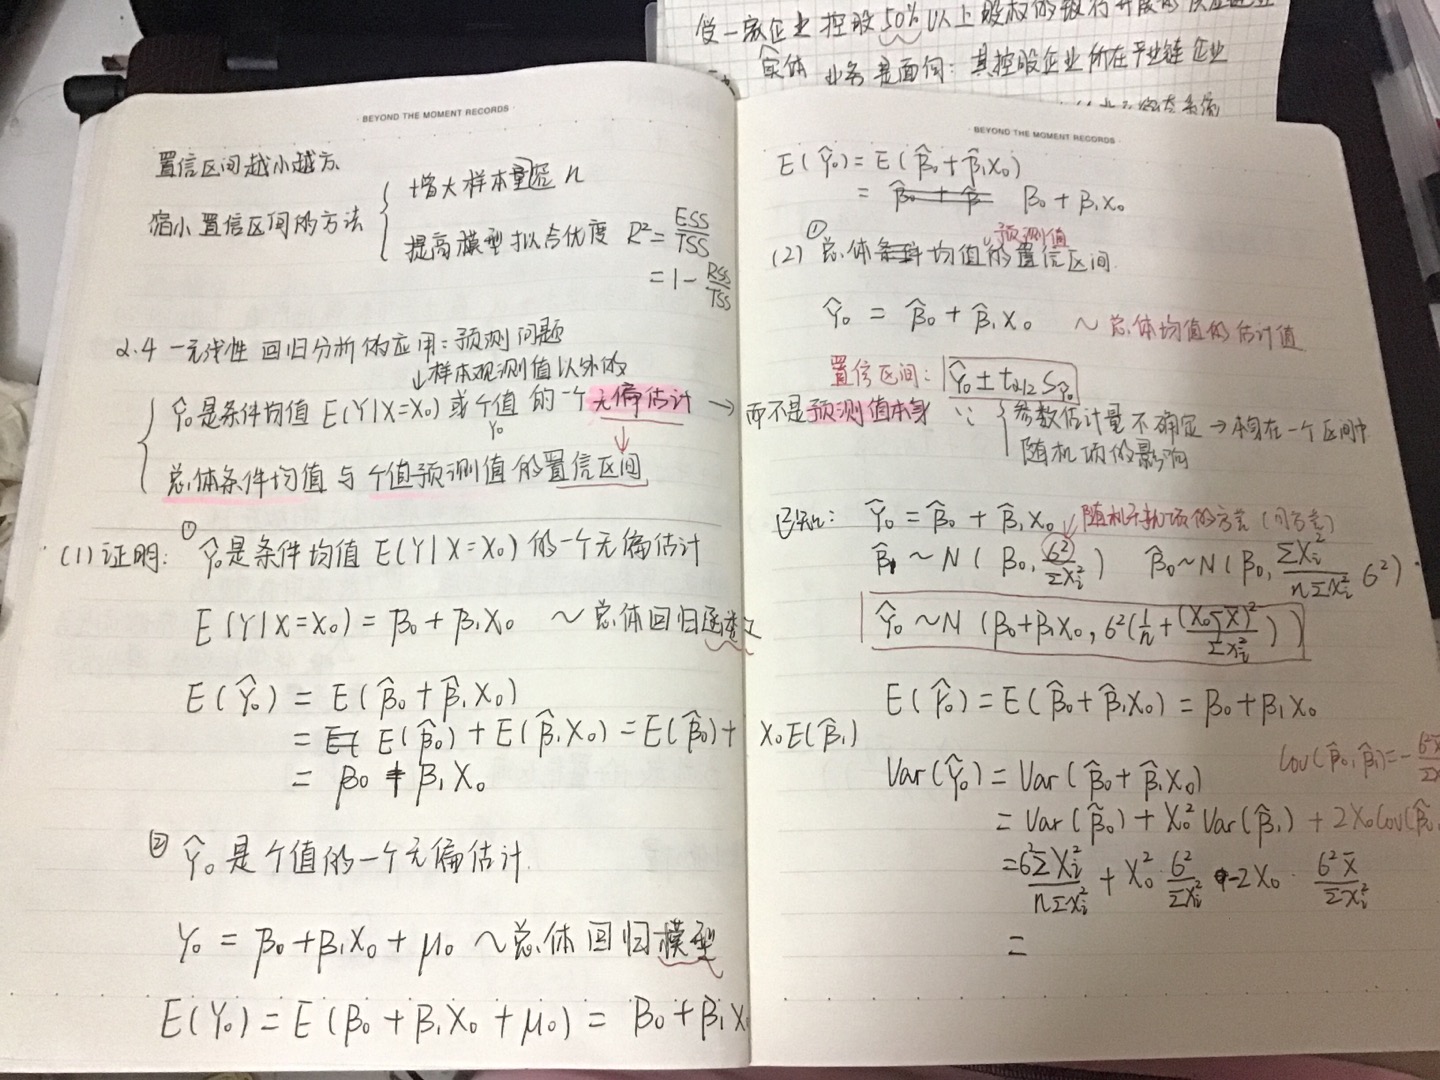 受一家企业控股50%以上股权的银行开展的供应链企业
实体 业务是面向：其控股企业所在产业链企业
BEYOND THE MOMENT RECORDS
置信区间越小越方
缩小置信区间的方法
增大样本量 n
提高模型拟合优度 R²=ESS/TSS
=1-RSS/TSS
2.4 一元线性回归分析的应用：预测问题
↓样本观测值以外的
Ŷ₀是条件均值 E(Y|X=X₀)或个值的一个无偏估计→
Y₀
总体条件均值与个值预测值的置信区间
(1)证明：①Ŷ₀是条件均值 E(Y|X=X₀)的一个无偏估计
E(Y|X=X₀)=β₀+β₁X₀ ~总体回归函数
E(Ŷ₀)=E(β̂₀+β̂₁X₀)
=E(β̂₀)+E(β̂₁X₀)=E(β̂₀)+X₀E(β̂₁)
=β₀+β₁X₀
②Ŷ₀是个值的一个无偏估计.
Y₀=β₀+β₁X₀+μ₀ ~总体回归模型
E(Y₀)=E(β₀+β₁X₀+μ₀)=β₀+β₁X
BEYOND THE MOMENT RECORDS
E(Ŷ₀)=E(β̂₀+β̂₁X₀)
=β₀+β₁X₀
预测值
(2)①总体条件均值的置信区间.
Ŷ₀=β̂₀+β̂₁X₀ ~总体均值的估计值
置信区间：Ŷ₀±t_{α/2}S_{Ŷ₀}
而不是预测值本身 ∵ 参数估计量不确定→本身在一个区间中
随机项的影响
已知：Ŷ₀=β̂₀+β̂₁X₀ 随机干扰项的方差(同方差)
β̂₁~N(β₀,σ²/Σxᵢ²) β̂₀~N(β₀,ΣXᵢ²/nΣxᵢ² σ²)
Ŷ₀~N(β₀+β₁X₀,σ²(1/n+(X₀-X̄)²/Σxᵢ²))
E(Ŷ₀)=E(β̂₀+β̂₁X₀)=β₀+β₁X₀
Cov(β̂₀,β̂₁)=-σ²X̄/Σx
Var(Ŷ₀)=Var(β̂₀+β̂₁X₀)
=Var(β̂₀)+X₀²Var(β̂₁)+2X₀Cov(β̂₀,
=σ²ΣXᵢ²/nΣxᵢ²+X₀²·σ²/Σxᵢ²-2X₀·σ²X̄/Σxᵢ²
=